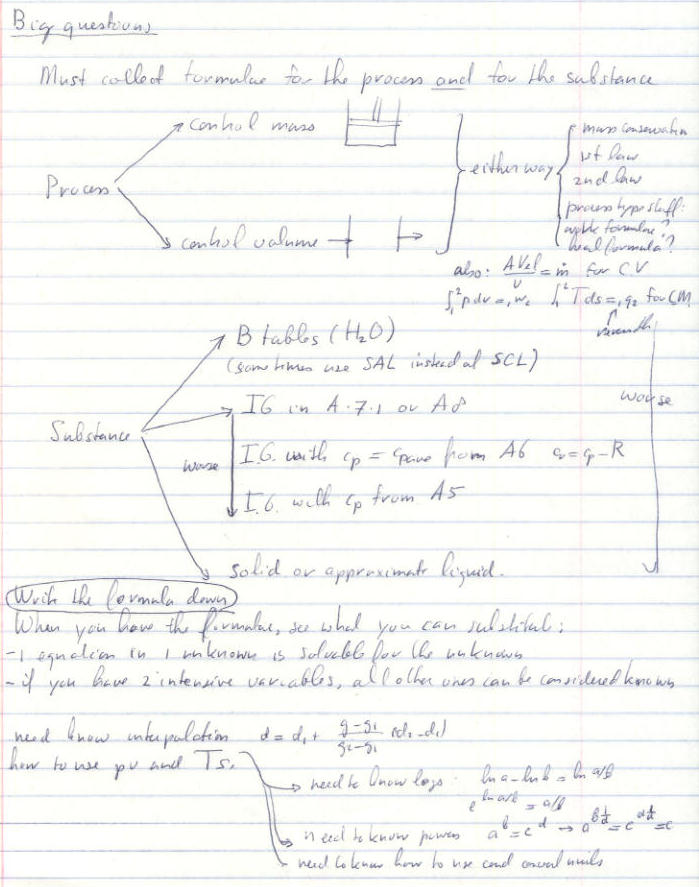 Big questions
Must collect formulae for the process and for the substance
control mass
mass conservation
1st law
either way
2nd law
Process
process type stuff:
work formulae?
heat formula?
control volume
also: AVel/v = ṁ for CV
∫₁² p dv = ₁w₂ ∫₁² T ds = ₁q₂ for CM
B tables (H₂O)
(sometimes use SAL instead of SCL)
IG in A.7.1 or A8
worse
Substance
worse
I.G. with cp = cpave from A6 cv = cp - R
I.G. with cp from A5
solid or approximate liquid.
Write the formula down
When you have the formulae, see what you can substitute:
- 1 equation in 1 unknown is solvable for the unknown
- if you have 2 intensive variables, all other ones can be considered known
need know interpolation d = d₁ + (g-g₁)/(g₂-g₁) (d₂-d₁)
how to use pv and Ts.
need to know logs ln a - ln b = ln a/b
e^(ln a/b) = a/b
need to know powers a^b = c^d → a^(b 1/d) = c^(d 1/d) = c
need to know how to use and convert units